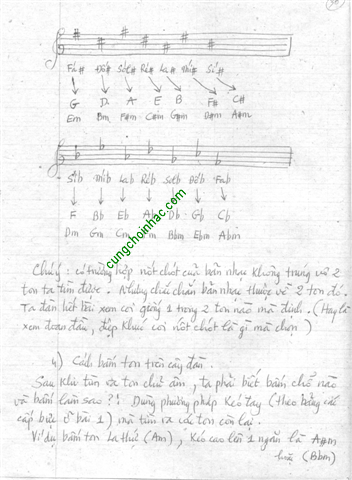 Fa# Đô# Sol# Rê# La# Mi# Si#
G D A E B F# C#
Em Bm F#m C#m G#m D#m A#m
Sib Mib Lab Rêb Solb Đôb Fab
F Bb Eb Ab Db Gb Cb
Dm Gm Cm Fm Bbm Ebm Abm
cungchoinhac.com
Chú ý : có trường hợp nốt chót của bản nhạc không trùng với 2
ton ta tìm được. Nhưng chắc chắn bản nhạc thuộc về 2 ton đó.
Ta đàn tiết tấu xem coi giống 1 trong 2 ton nào mà định. (Hay là
xem đoạn đầu, điệp khúc coi nốt chót là gì mà chọn)
4) Cách bấm ton trên cây đàn.
Sau khi tìm ra ton chủ âm, ta phải biết bấm chỗ nào
và bấm làm sao ?! Dùng phương pháp kéo tay (theo bảng các
cấp bực ở bài 1) mà tìm ra các ton còn lại.
Ví dụ bấm ton La thứ (Am), kéo cao lên 1 ngăn là A#m
(Bbm)